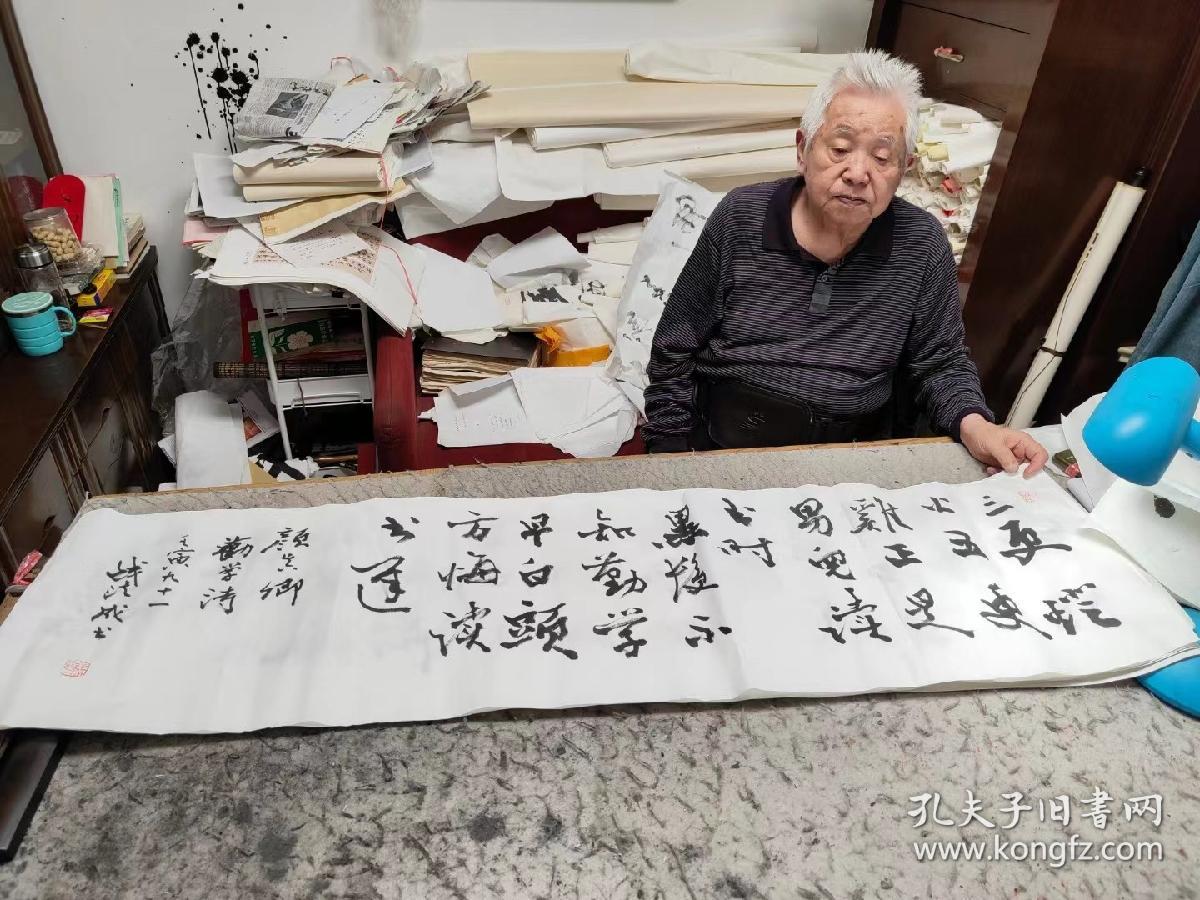 三更燈
火五更
雞正是
男兒读
书时
黑髮不
知勤学
早白頭
方悔读
书遲
顏真卿
勸学诗
壬寅九十一
书
孔夫子旧書网
www.kongfz.com